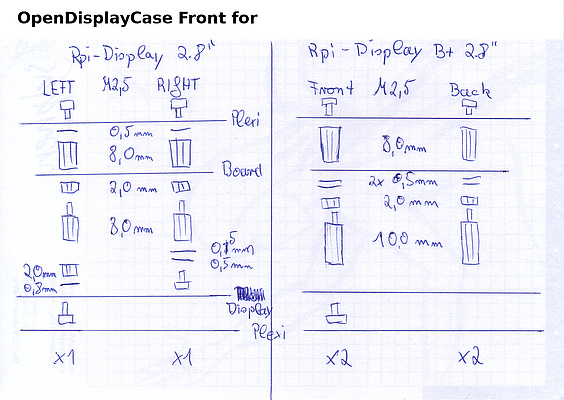 OpenDisplayCase Front for
Rpi-Display 2.8"
LEFT M2,5 RIGHT
Plexi
0,5mm
8,0mm
Board
2,0 mm
8,0mm
0,5mm
2,0mm
0,8mm
Display
Plexi
x1 x1
Rpi-Display B+ 2.8"
Front M2,5 Back
8,0mm
2x 0,5mm
2,0mm
10,0 mm
x2 x2